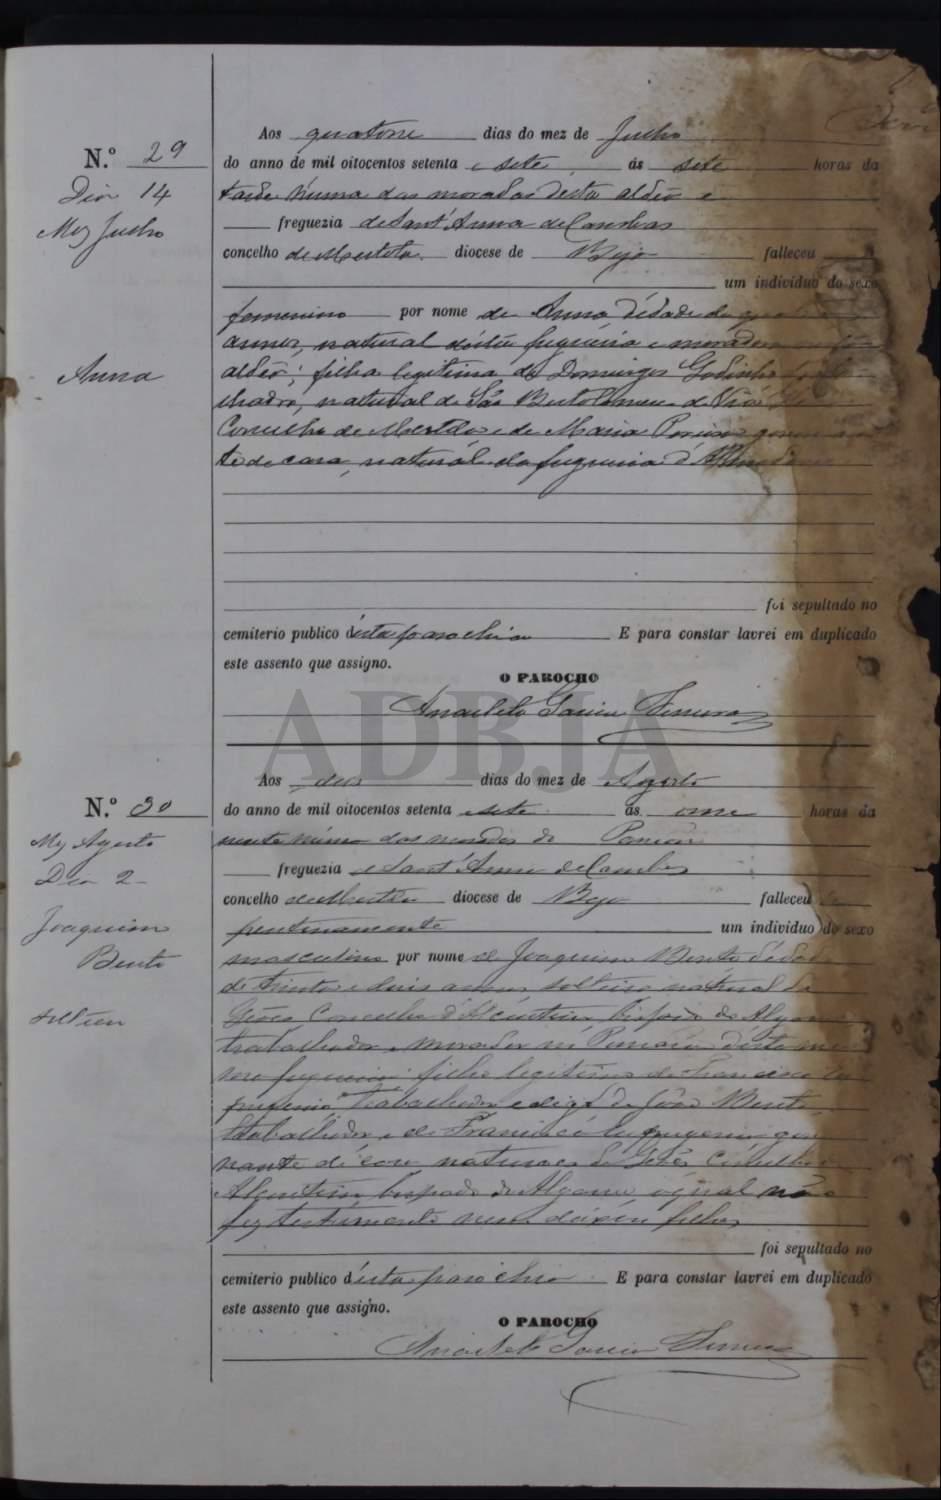 N.º 29
Dia 14
Mez Julho
Anna
Aos quatorze dias do mez de Julho
do anno de mil oitocentos setenta e sete ás sete horas da
tarde n'uma das moradas desta aldêa e
freguezia de Sant'Anna de Cambas
concelho de Mertola diocese de Beja falleceu
um individuo do sexo
femenino por nome de Anna d'idade de
annos, natural d'esta freguezia e moradora
aldêa; filha legitima de Domingos Godinho
natural de São Bartholomeu de Via
Concelho de Mertola e de Maria
de casa, natural da freguezia d'
foi sepultado no
cemiterio publico d'esta parochia E para constar lavrei em duplicado
este assento que assigno.
O PAROCHO
Anacleto Garcia
ADBJA
N.º 30
Mez Agosto
Dia 2
Joaquim
Bento
solteiro
Aos dois dias do mez de Agosto
do anno de mil oitocentos setenta e sete ás onze horas da
noute n'uma das moradas do
freguezia de Sant'Anna de Cambas
concelho de Mertola diocese de Beja falleceu
pentinamente um individuo do sexo
masculino por nome de Joaquim Bento d'idade
de trinta e dois annos solteiro natural de
Giões Concelho d'Alcoutim, bispado do Algarve
trabalhador e morador no d'esta
freguezia filho legitimo de Francisco
trabalhador e digo de João Bento,
trabalhador e de Francisca
de casa naturaes de Giões Concelho
Alcoutim bispado do Algarve, o qual não
fez testamento nem deixou filhos
foi sepultado no
cemiterio publico d'esta parochia E para constar lavrei em duplicado
este assento que assigno.
O PAROCHO
Anacleto Garcia